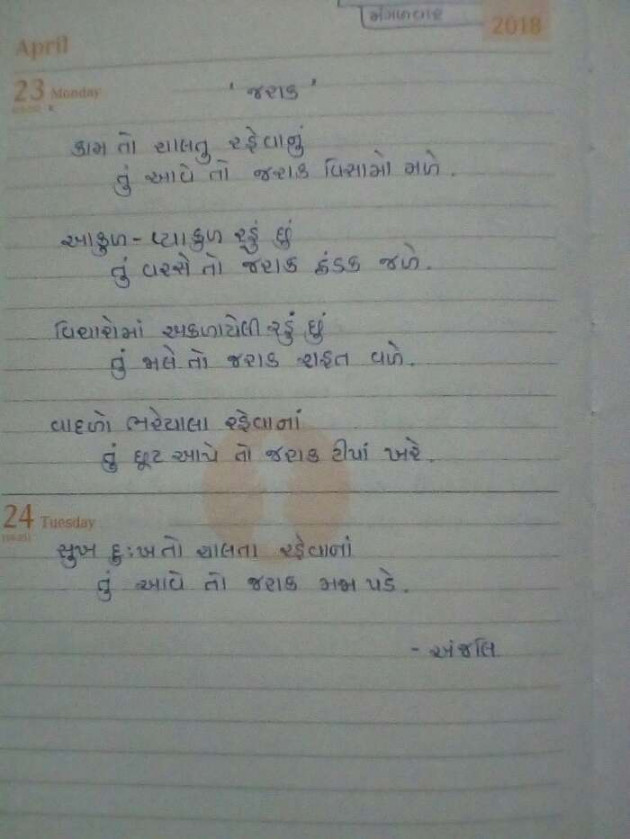 મંગળવાર
April
2018
23 Monday
' જરાક '
કામ તો ચાલતુ રહેવાનું
તું આવે તો જરાક વિસામો મળે.
આકુળ - વ્યાકુળ રહું છું
તું વરસે તો જરાક ઠંડક જળે.
વિચારોમાં અકળાયેલી રહું છું
તું મલે તો જરાક રાહત વળે.
વાદળો ભરેયાલા રહેવાનાં
તું છૂટ આપે તો જરાક ટીપાં ખરે.
24 Tuesday
સુખ દુ:ખ તો ચાલતા રહેવાનાં
તું આવે તો જરાક મજા પડે.
- અંજલિ